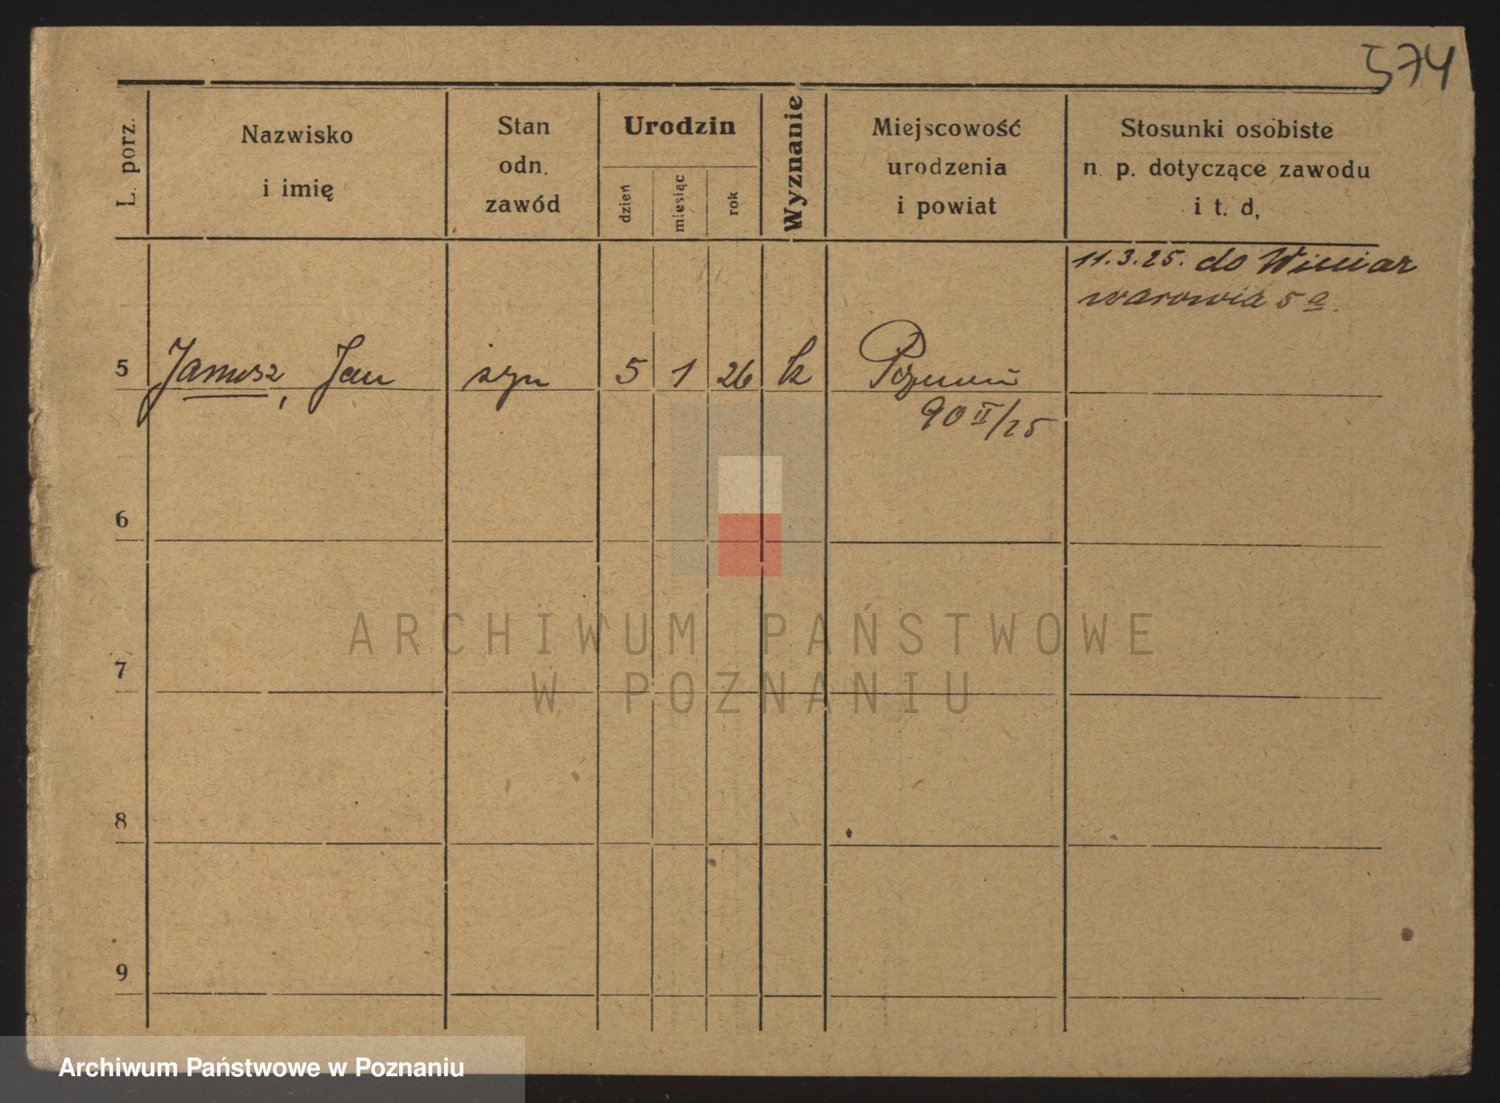 574
L. porz.
Nazwisko
i imię
Stan
odn.
zawód
Urodzin
dzień
miesiąc
rok
Wyznanie
Miejscowość
urodzenia
i powiat
Stosunki osobiste
n. p. dotyczące zawodu
i t. d.
11.3.25. do
5 a.
5 Janusz, Jan syn 5 1 26 k Poznań
90 II/25
6
7
8
9
ARCHIWUM PAŃSTWOWE
W POZNANIU
Archiwum Państwowe w Poznaniu